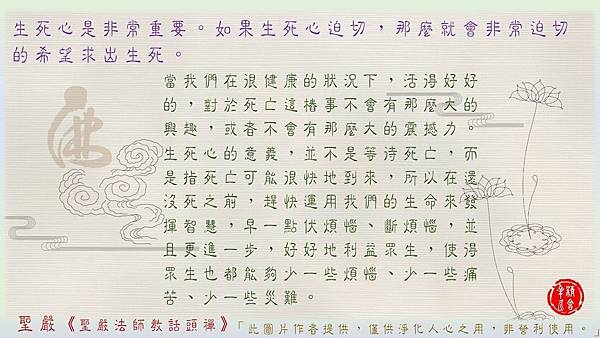 生死心是非常重要。如果生死心迫切，那麼就會非常迫切
的希望求出生死。
佛
當我們在很健康的狀況下，活得好好
的，對於死亡這樁事不會有那麼大的
興趣，或者不會有那麼大的震撼力。
生死心的意義，並不是等待死亡，而
是指死亡可能很快地到來，所以在還
沒死之前，趕快運用我們的生命來發
揮智慧，早一點伏煩惱、斷煩惱，並
且更進一步，好好地利益眾生，使得
眾生也都能夠少一些煩惱、少一些痛
苦、少一些災難。
聖嚴《聖嚴法師教話頭禪》「此圖片作者提供，僅供淨化人心之用，非營利使用。」